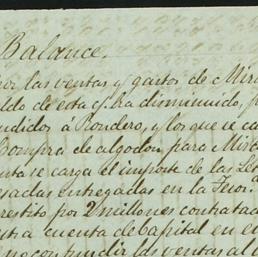 Balance.
por las ventas y gastos de Mira
ldo de esta cta ha disminuido, p
ndidos á Rondero, y los que se ca
Compra de algodon para Mira
nta se carga el importe de las Le
esadas entregadas en la Tesor.
restito por 2 millones contratad
cuenta de Capital en e
no confundir las ventas al